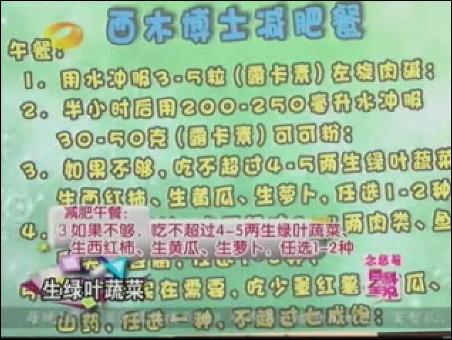 西木博士减肥餐
午餐：
1、用水冲服3-5粒（露卡素）左旋肉碱；
2、半小时后用200-250毫升水冲服
30-50克（露卡素）可可粉；
3、如果不够，吃不超过4-5两生绿叶蔬菜、
生西红柿、生黄瓜、生萝卜，任选1-2种
4、
两肉类、鱼
减肥午餐：
3 如果不够，吃不超过4-5两生绿叶蔬菜、
生西红柿、生黄瓜、生萝卜，任选1-2种
生绿叶蔬菜
5、
在需要，吃少量红薯、
瓜、
山药，任选一种，不超过七成饱；